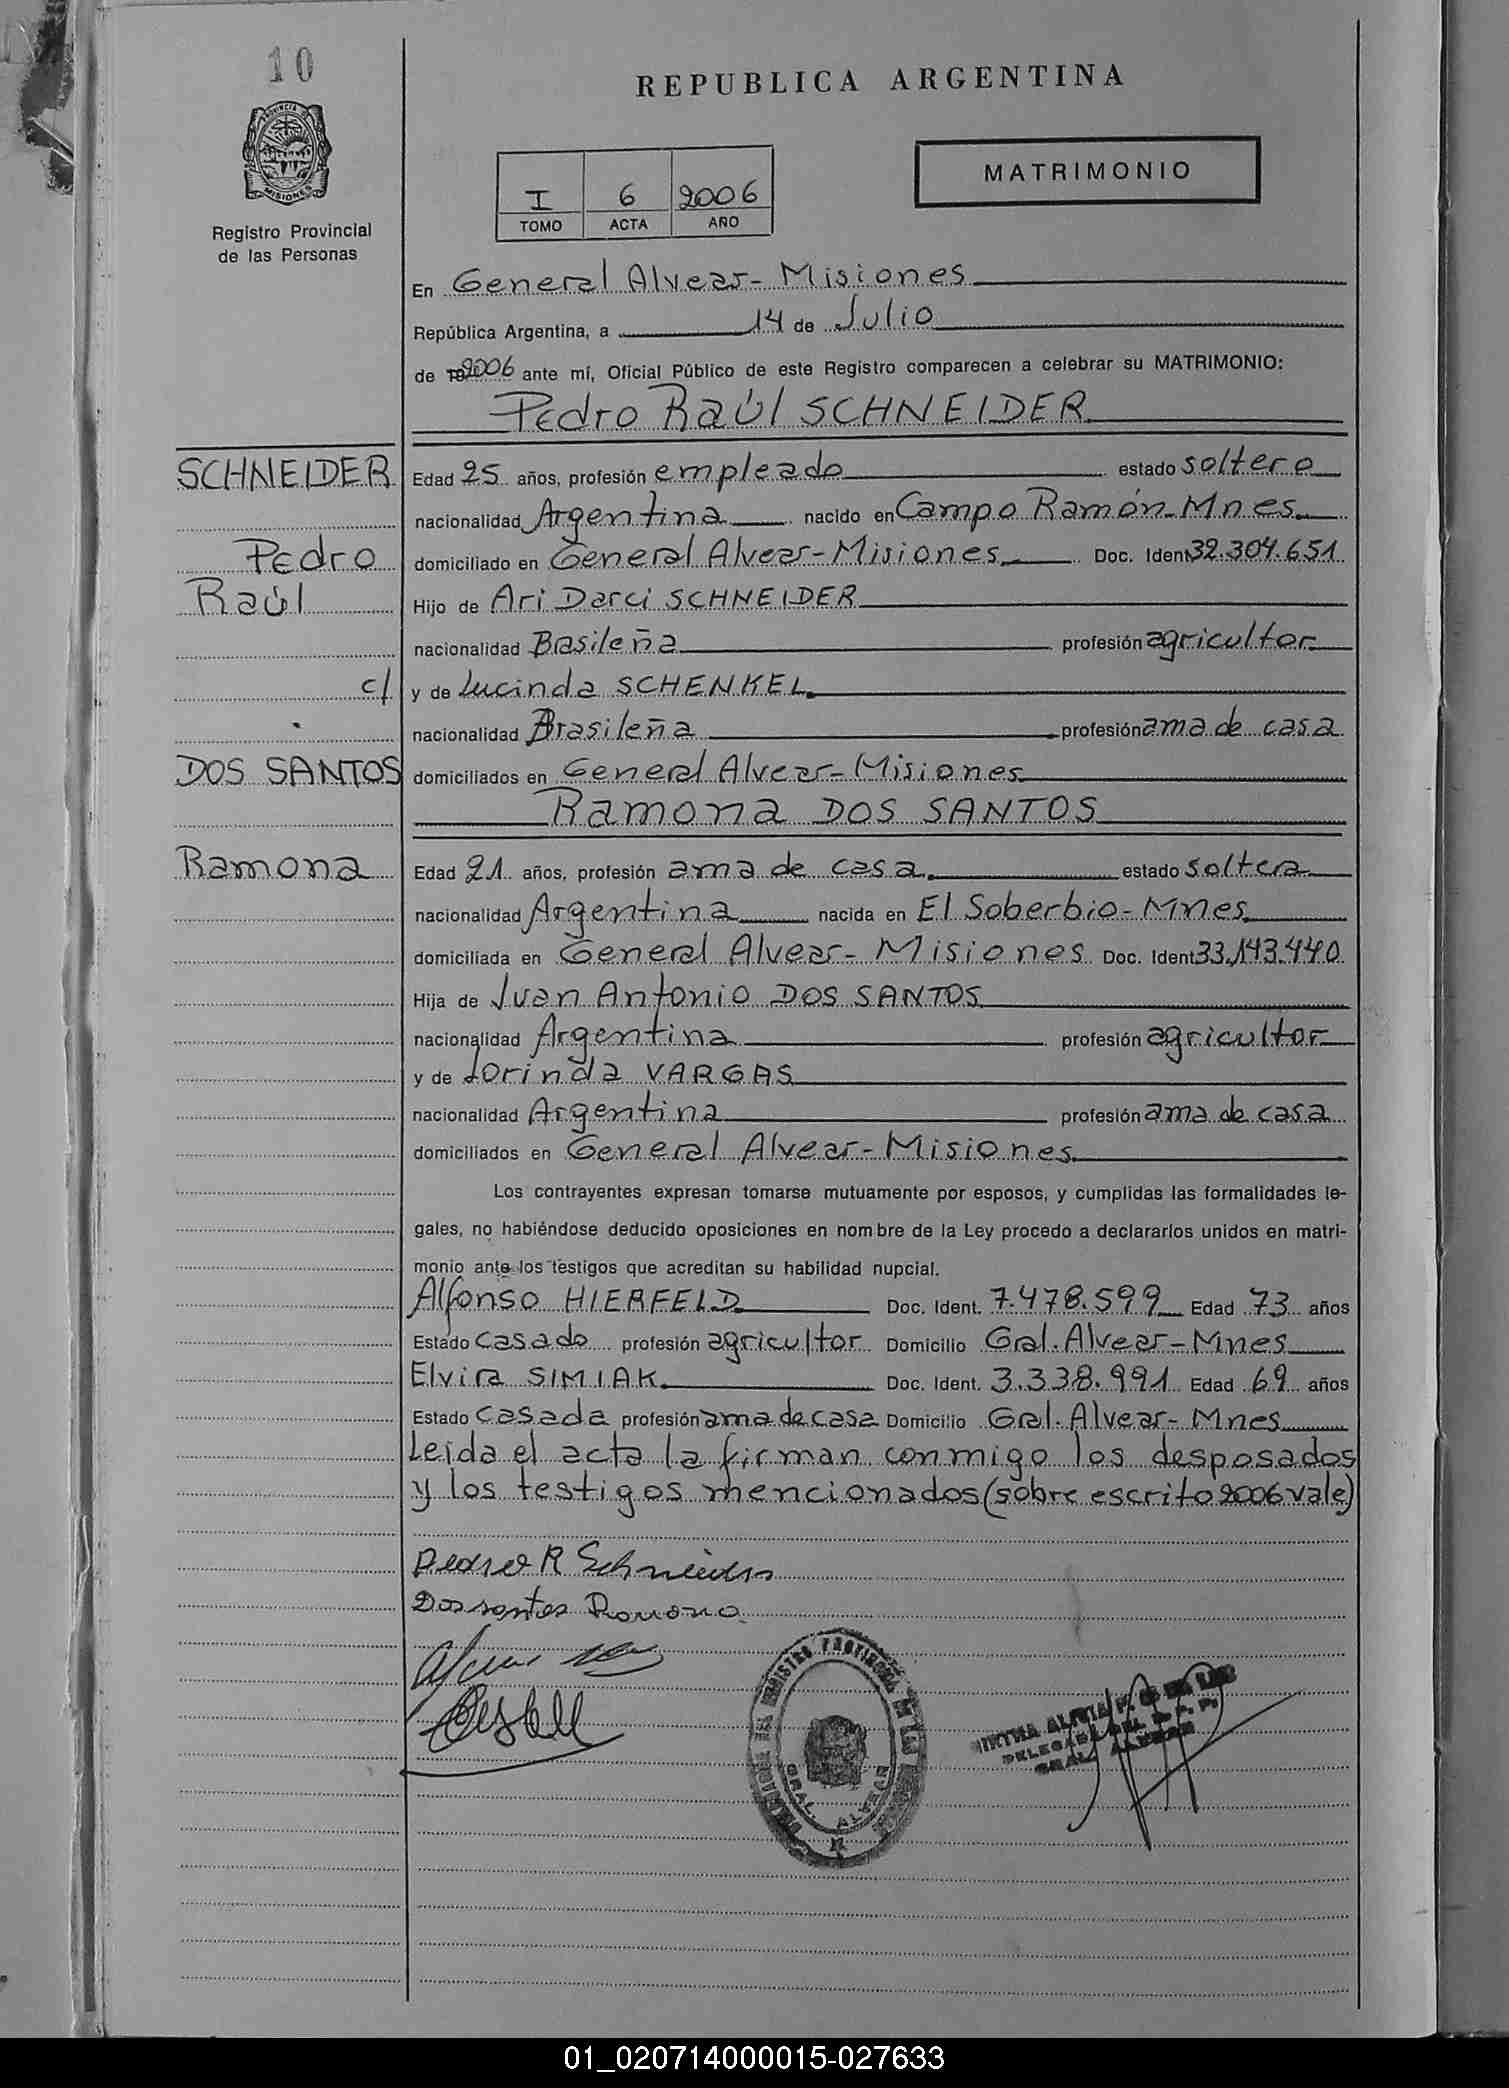 10
REPUBLICA ARGENTINA
PROVINCIA DE
MISIONES
Registro Provincial
de las Personas
MATRIMONIO
I 6 2006
TOMO ACTA AÑO
En General Alvear - Misiones
República Argentina, a 14 de Julio
de 2006 ante mí, Oficial Público de este Registro comparecen a celebrar su MATRIMONIO:
Pedro Raúl SCHNEIDER
SCHNEIDER
Pedro
Raúl
c/
DOS SANTOS
Ramona
Edad 25 años, profesión empleado estado soltero
nacionalidad Argentina nacido en Campo Ramón - Mnes
domiciliado en General Alvear - Misiones Doc. Ident 32.304.651
Hijo de Ari Darci SCHNEIDER
nacionalidad Basileña profesión agricultor
y de Lucinda SCHENKEL
nacionalidad Brasileña profesión ama de casa
domiciliados en General Alvear - Misiones
Ramona DOS SANTOS
Edad 21 años, profesión ama de casa estado soltera
nacionalidad Argentina nacida en El Soberbio - Mnes
domiciliada en General Alvear - Misiones Doc. Ident 33.143.440
Hija de Juan Antonio DOS SANTOS
nacionalidad Argentina profesión agricultor
y de Lorinda VARGAS
nacionalidad Argentina profesión ama de casa
domiciliados en General Alvear - Misiones
Los contrayentes expresan tomarse mutuamente por esposos, y cumplidas las formalidades le-
gales, no habiéndose deducido oposiciones en nombre de la Ley procedo a declararlos unidos en matri-
monio ante los testigos que acreditan su habilidad nupcial.
Alfonso HIERFELD Doc. Ident. 7.478.599 Edad 73 años
Estado casado profesión agricultor Domicilio Gral. Alvear - Mnes
Elvira SIMIAK Doc. Ident. 3.338.991 Edad 69 años
Estado casada profesión ama de casa Domicilio Gral. Alvear - Mnes
Leida el acta la firman conmigo los desposados
y los testigos mencionados (sobre escrito 2006 vale)
Pedro R Schneider
Dos santos Ramona
REGISTRO PROVINCIAL DE LAS
GRAL. ALVEAR
MIRTHA
DELEGADA DEL R. P. P.
GRAL. ALVEAR
01_020714000015-027633